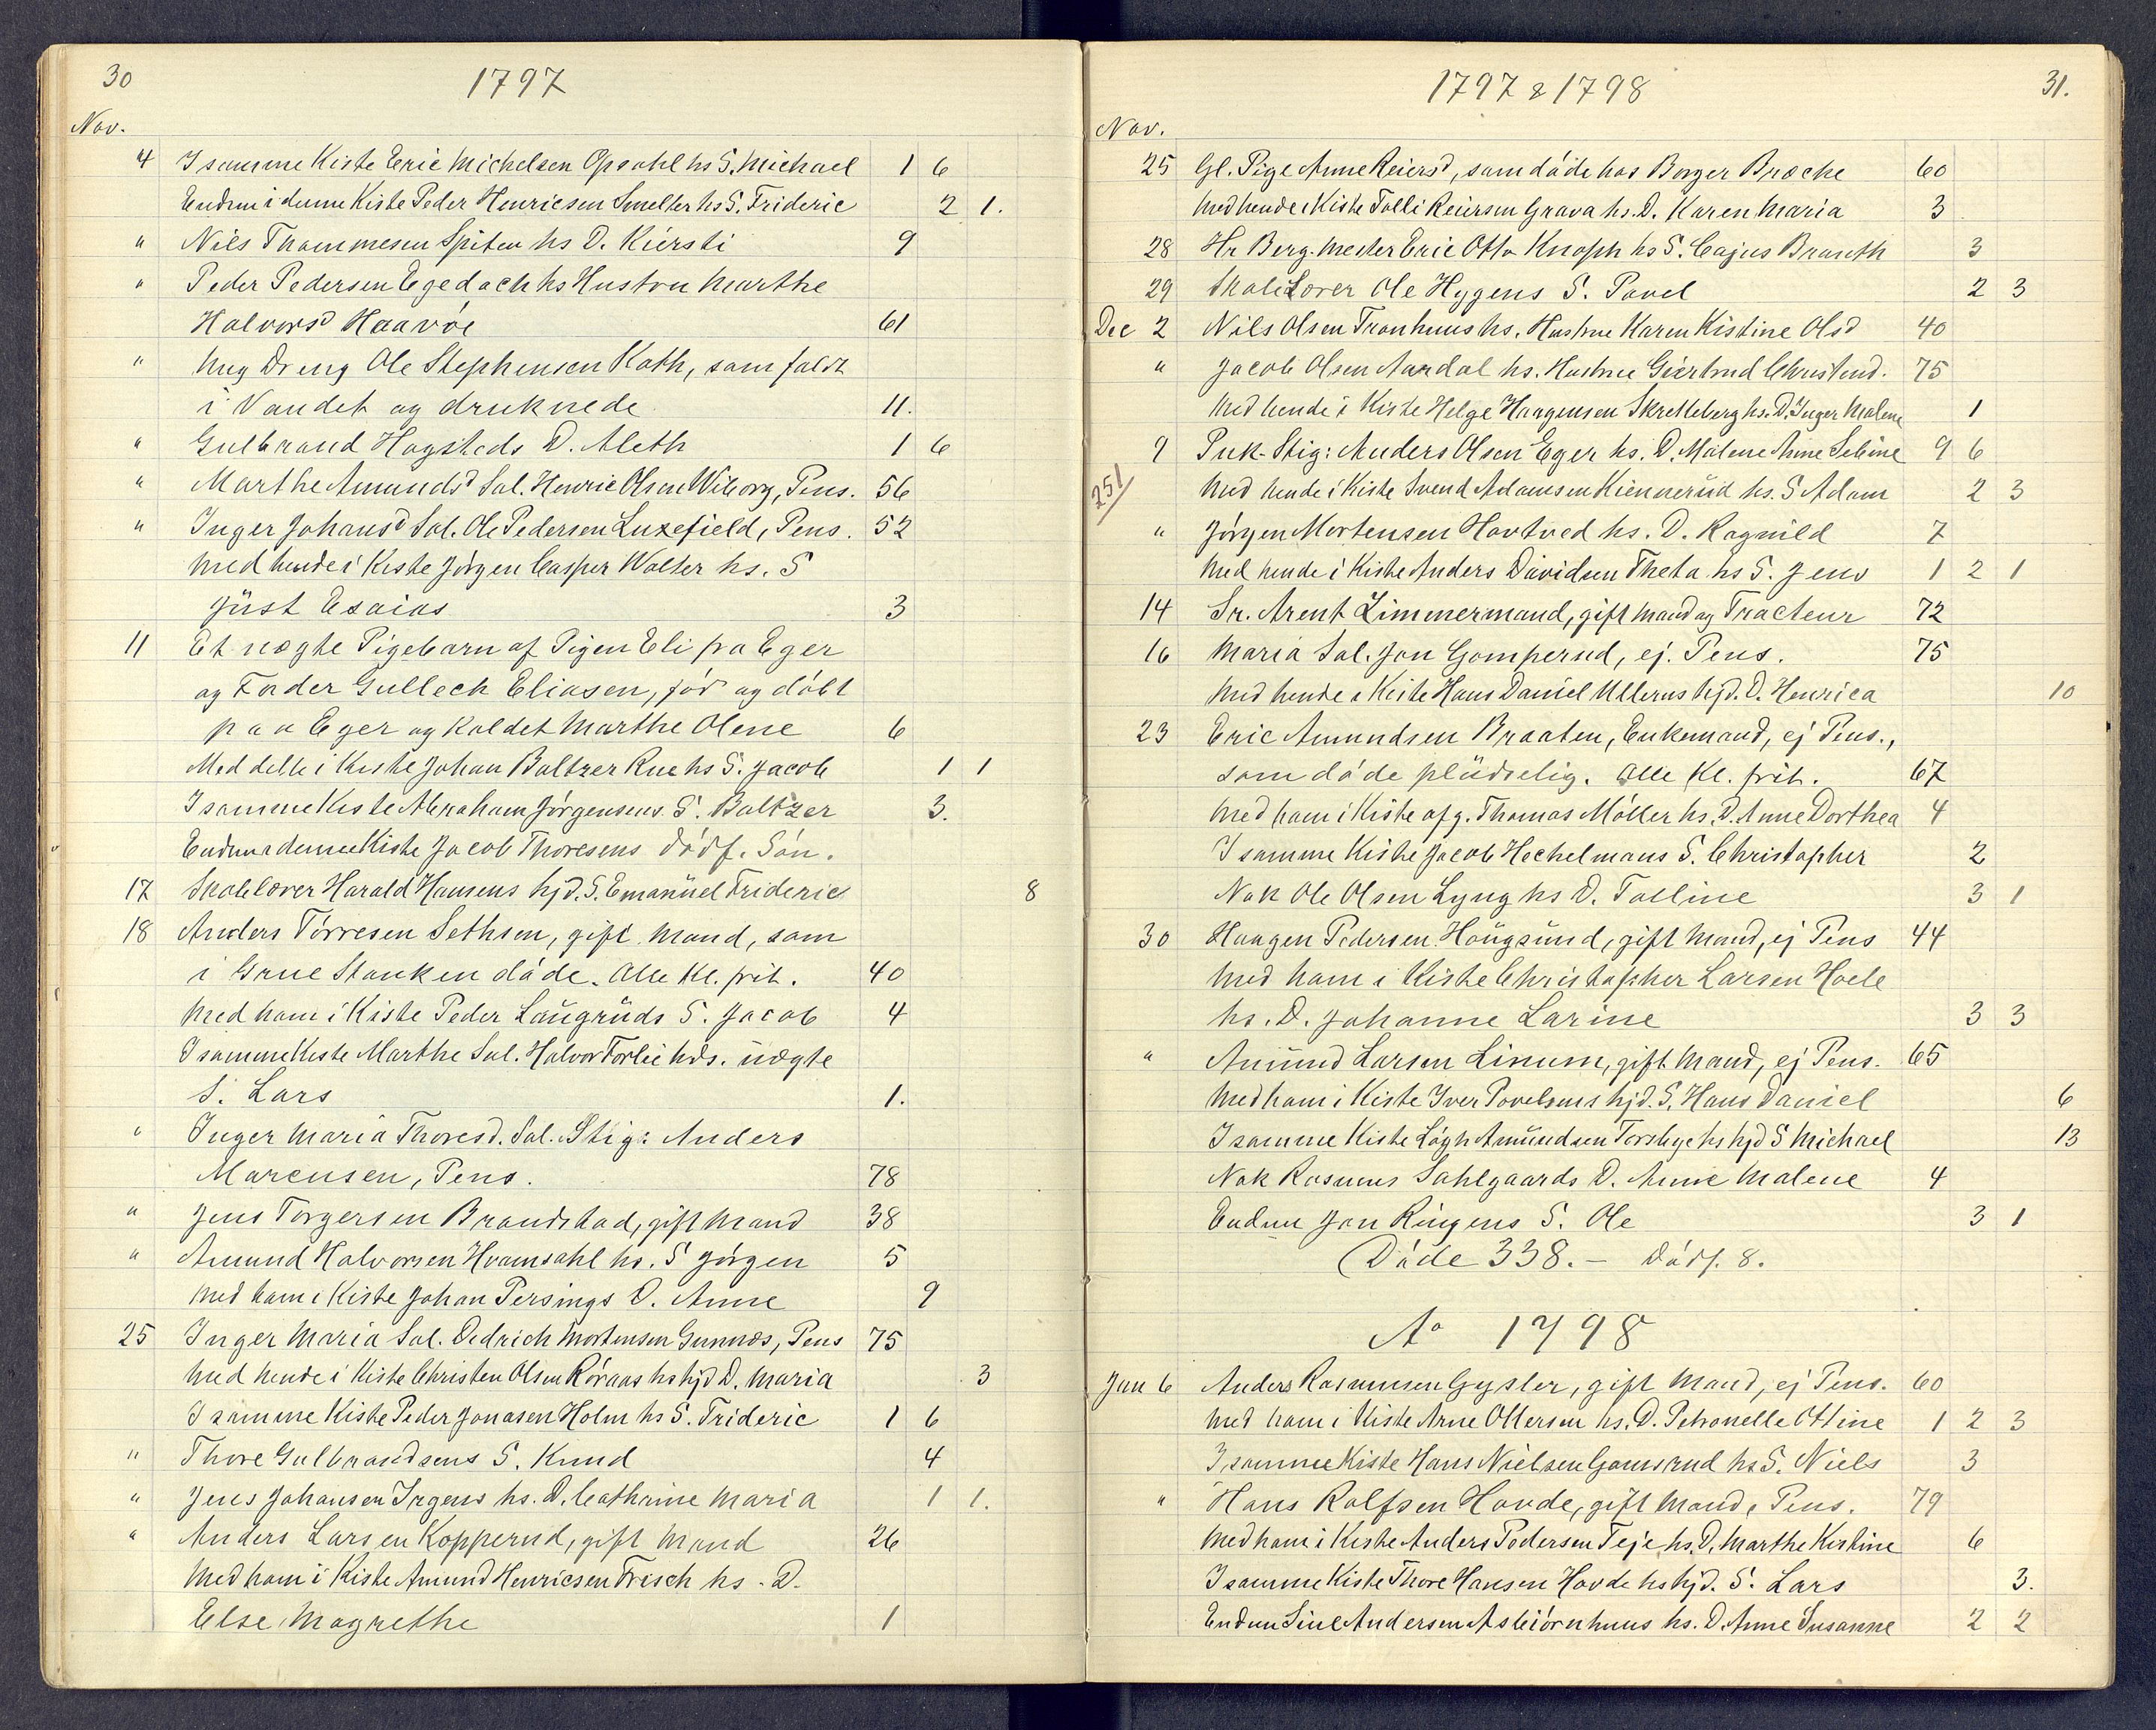 30
1797
Nov.
4 I samme Kiste Eric Michelsen Opsahl hs S. Michael 1 6
Endnu i denne Kiste Peder Henricsen Smelter hs S. Frideric 2 1.
" Nils Thommesen Spiten hs D. Kiersti 9
" Peder Pedersen Egedach hs Hustru Marthe
Halvorsd Haavöe 61
" Ung Dreng Ole Stephensen Kath, som faldt
i Vandet og druknede 11.
" Gulbrand Hogsteds D. Aleth 1 6
" Marthe Amundsd Sal. Henric Olsen Wiborg, Pens. 56
" Inger Johansd Sal. Ole Pedersen Luxefield, Pens. 52
Med hende i Kiste Jörgen Casper Walter hs. S
Jüst Esaias 3
11 Et uægte Pigebarn af Pigen Eli fra Eger
og Fader Gullech Eliasen, föd og döbt
paa Eger og Kaldet Marthe Olene 6
Med dette i Kiste Johan Baltzer Rue hs S. Jacob 1 1
I samme Kiste Abraham Jörgensens S. Baltzer 3.
Endnu i denne Kiste Jacob Thoresens dödf. Sön.
17 Skolelærer Harald Hansens hjd. S. Emanüel Frideric 8
18 Anders Törresen Sethsen, gift Mand, som
i Grue Stanken döde. Alle Kl. frit. 40
Med ham i Kiste Peder Laugrüds S. Jacob 4
I samme Kiste Marthe Sal. Halvor Torlie hds. uægte
S. Lars 1.
" Inger Maria Thoresd. Sal. Stig: Anders
Marcusen, Pens. 78
" Jens Torgersen Brandstad, gift Mand 38
" Amund Halvorsen Hvamsahl hs. S Jörgen 5
Med ham i Kiste Johan Persings D. Anne 9
25 Inger Maria Sal. Dedrich Mortensen Gunnæs, Pens 75
Med hende i Kiste Christen Olsen Röraas hs hjd D. Maria 3
I samme Kiste Peder Jonasen Holm hs S. Frideric 1 6
" Thore Gulbrandsens S. Knud 4
" Jens Johansen Irgens hs. D. Cathrine Maria 1 1.
" Anders Larsen Kopperud, gift Mand 26
Med ham i Kiste Amund Henricsen Frisch hs. D.
Else Magrethe 1
1797 & 1798
31.
Nov.
25 Gl. Pige Anne Reiersd, som döde hos Borger Bræcke 60
Med hende i Kiste Tolli Reiersen Grava hs. D. Karen Maria 3
28 Hr Berg-Mester Eric Otto Knoph hs S. Cajus Branth 3
29 Skolelærer Ole Hygens S. Povel 2 3
Dec 2 Nils Olsen Tranhuus hs. Hustrue Karen Kistine Olsd 40
" Jacob Olsen Aardal hs. Hustrue Giertrud Christend. 75
Med hende i Kiste Helge Haagensen Skretteberg hs. D. Inger Malene 1
9 Puk-Stig: Anders Olsen Eger hs. D. Malene Anne Sebine 9 6
251/
Med hende i Kiste Svend Adamsen Kiennerüd hs. S Adam 2 3
" Jörgen Mortensen Hovtved hs. D. Ragnild 7
Med hende i Kiste Anders Davidsen Theta hs S. Jens 1 2 1
14 Sr. Arent Zimmermand, gift mand og Tracteur 72
16 Maria Sal. Jon Gomperud, ej. Pens. 75
Med hende i Kiste Hans Daniel Ullerns hjd. D. Henrica 10
23 Eric Amundsen Braaten, Enkemand, ej Pens.,
som döde plüdselig. Alle Kl. frit. 67
Med ham i Kiste afg. Thomas Möller hs. D. Anne Dorthea 4
I samme Kiste Jacob Hechelmans S. Christopher 2
Nok Ole Olsen Lyng hs D. Talline 3 1
30 Haagen Pedersen Hougsünd, gift Mand, ej Pens 44
Med ham i Kiste Christopher Larsen Hoele
hs. D. Johanne Larine 3 3
" Amünd Larsen Linum, gift Mand, ej Pens. 65
Med ham i Kiste Iver Povelsens hjd. S. Hans Daniel 6
I samme Kiste Amündsen hs hjd S Michael 13
Nok Rasmus Sahlgaards D. Anne Malene 4
Endnu Jon Ringens S. Ole 3 1
Döde 338. – dödf. 8.
Ao 1798
Jan 6 Anders Rasmusen Gysler, gift Mand, ej Pens. 60
Med ham i Kiste Arne Ottersen hs. D. Petronelle Ottine 1 2 3
I samme Kiste Hans Nielsen Gamsrud hs S. Niels 3
" Hans Rolfsen Hovde, gift Mand, Pens. 79
Med ham i Kiste Anders Pedersen Teje hs. D. Marthe Kistine 6
I samme Kiste Thore Hansen Hovde hs hjd. S. Lars 3.
Endnu Siul Andersen Asbiörnhuus hs. D. Anne Susanne 2 2